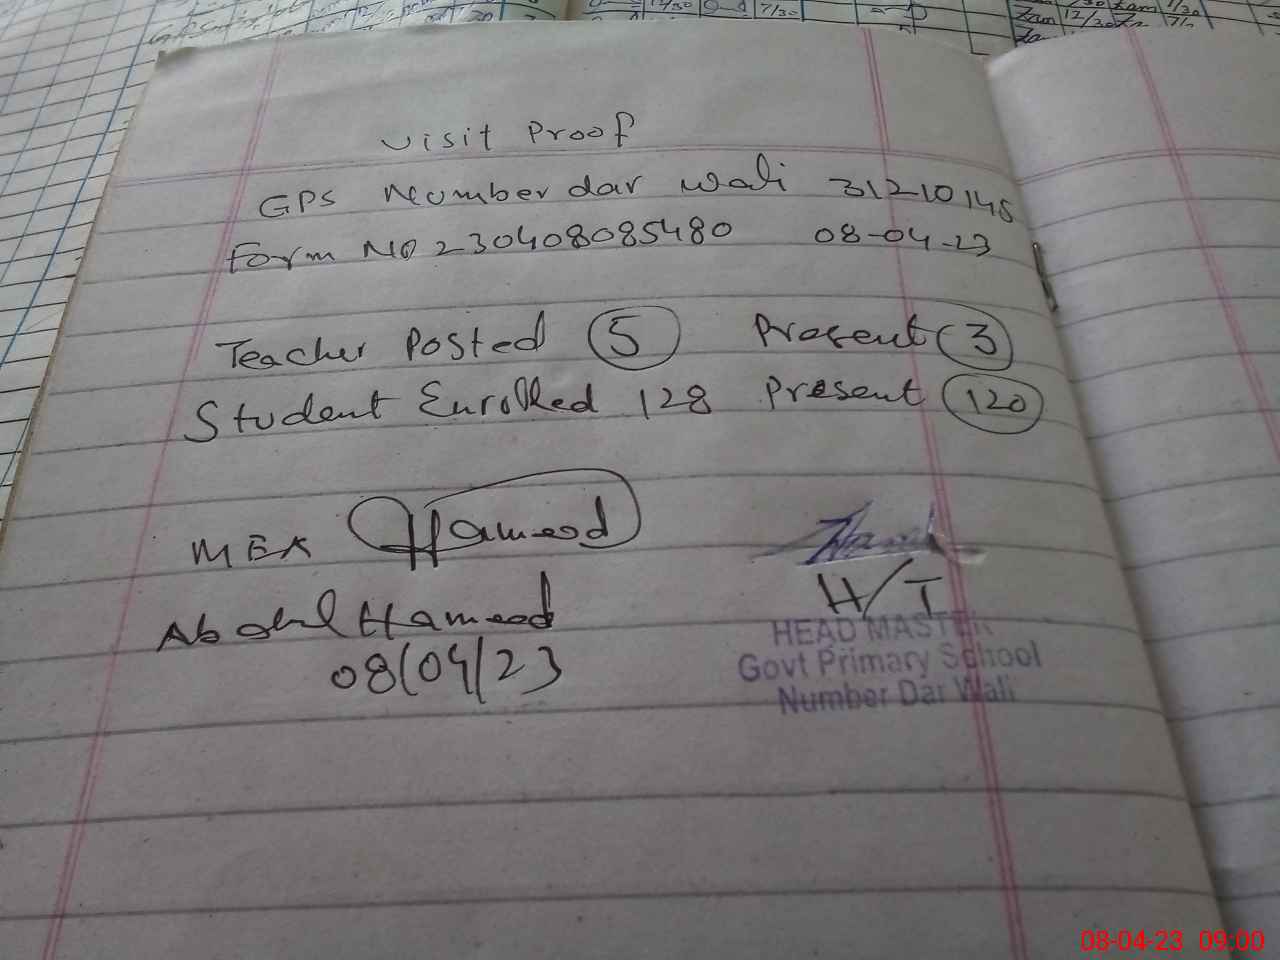 Visit Proof
GPS Number dar wali 31210145
Form No 230408085480 08-04-23
Teacher Posted 5 Present 3
Student Enrolled 128 Present 120
MEA Hameed
Abdul Hameed
08/04/23
H/T
HEAD MASTER
Govt Primary School
Number Dar Wali
08-04-23 09:00